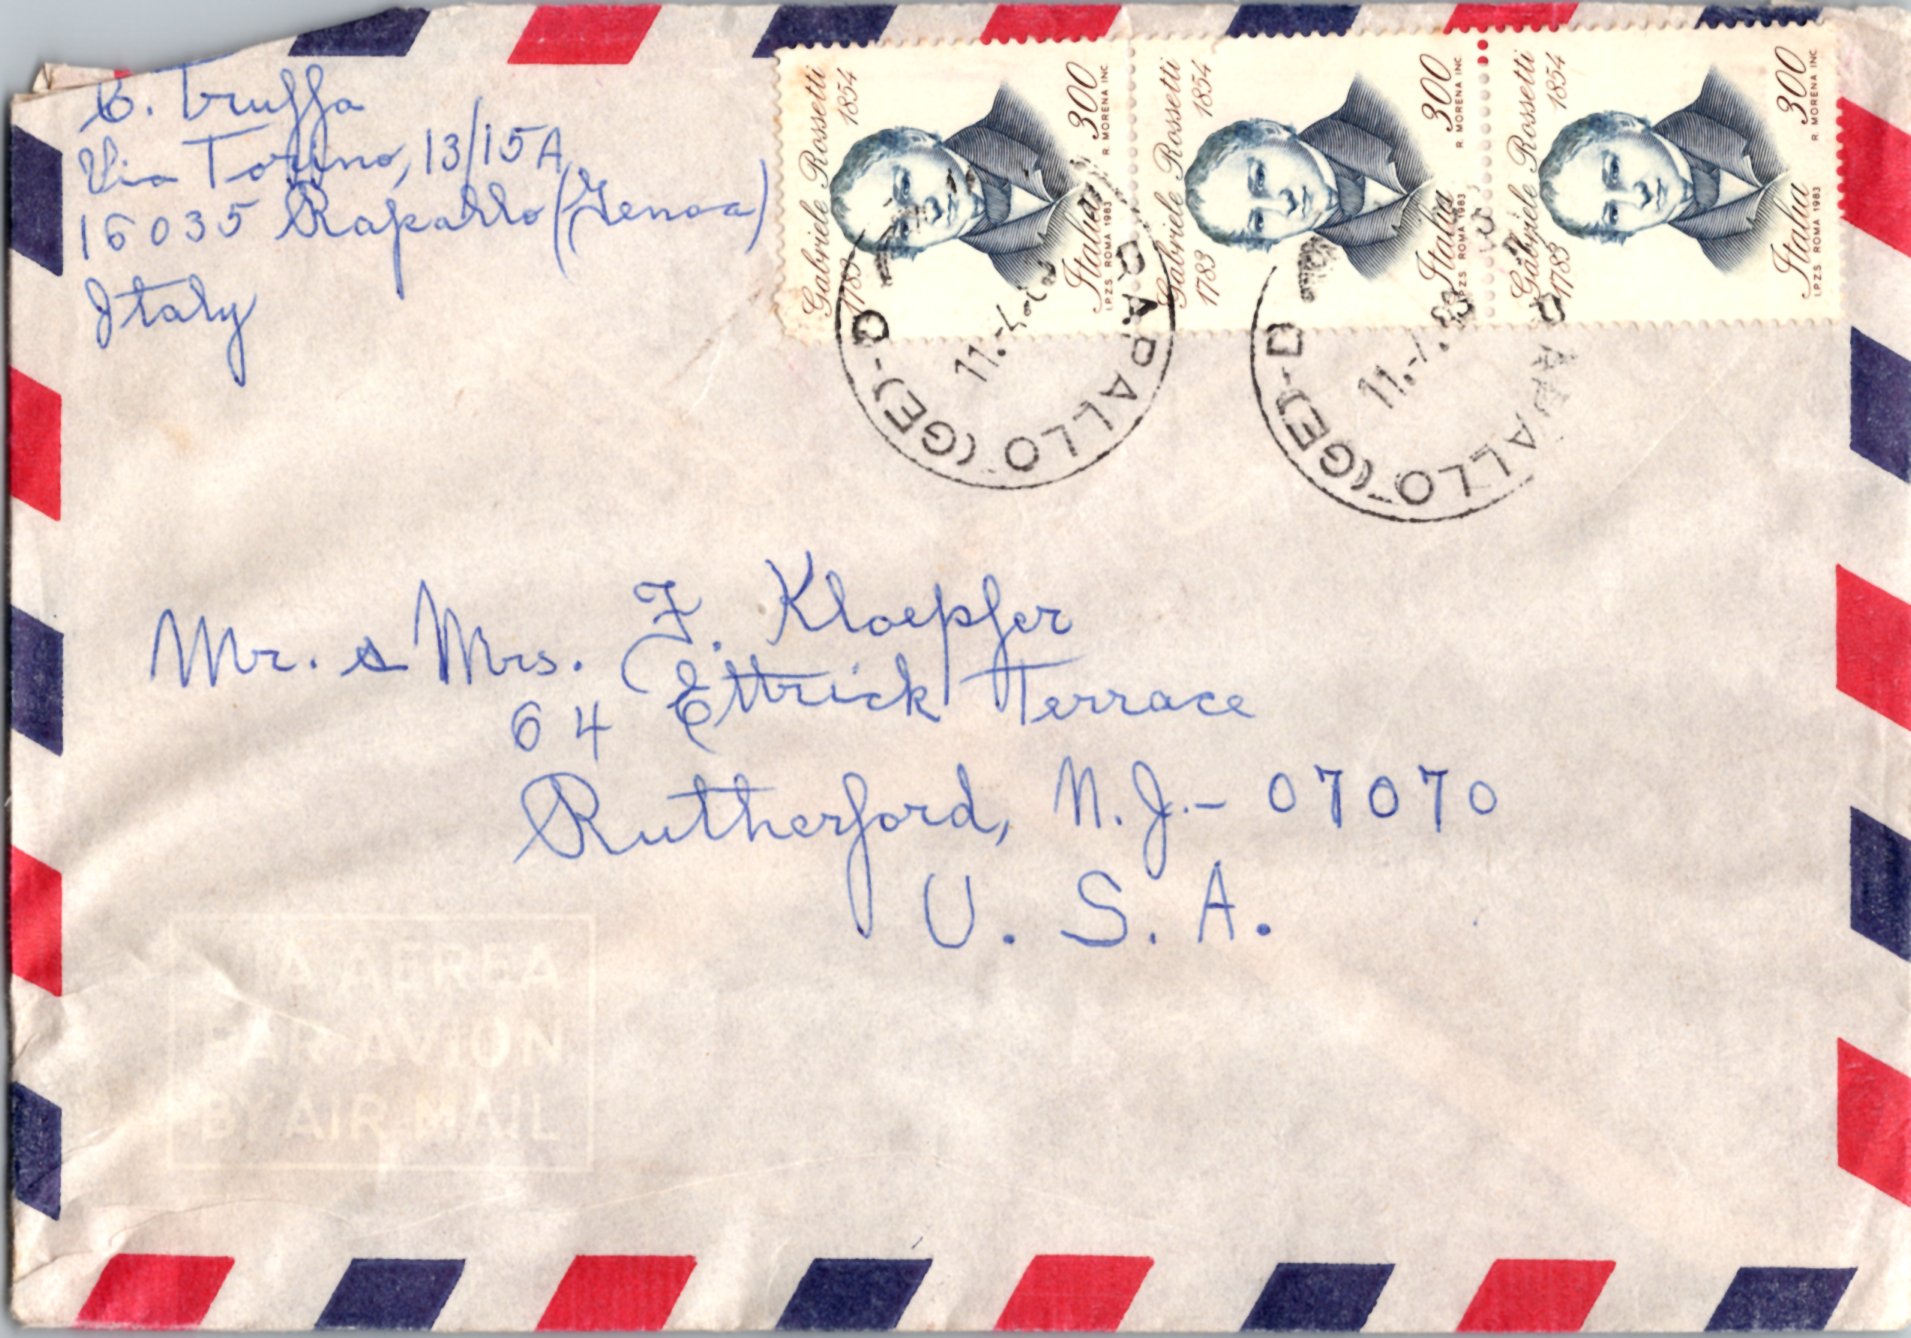 B. Truffa
Via Torino, 13/15A
16035 Rapallo (Genoa)
Italy
Gabriele Rossetti
1783 1854
Italia 300
I.P.Z.S. ROMA 1983 R. MORENA INC.
Gabriele Rossetti
1783 1854
Italia 300
I.P.Z.S. ROMA 1983 R. MORENA INC.
Gabriele Rossetti
1783 1854
Italia 300
I.P.Z.S. ROMA 1983 R. MORENA INC.
RAPALLO (GE)-D
RAPALLO (GE)-D
Mr. & Mrs. F. Kloepfer
64 Ettrick Terrace
Rutherford, N.J.- 07070
U. S. A.
VIA AEREA
PAR AVION
BY AIR MAIL